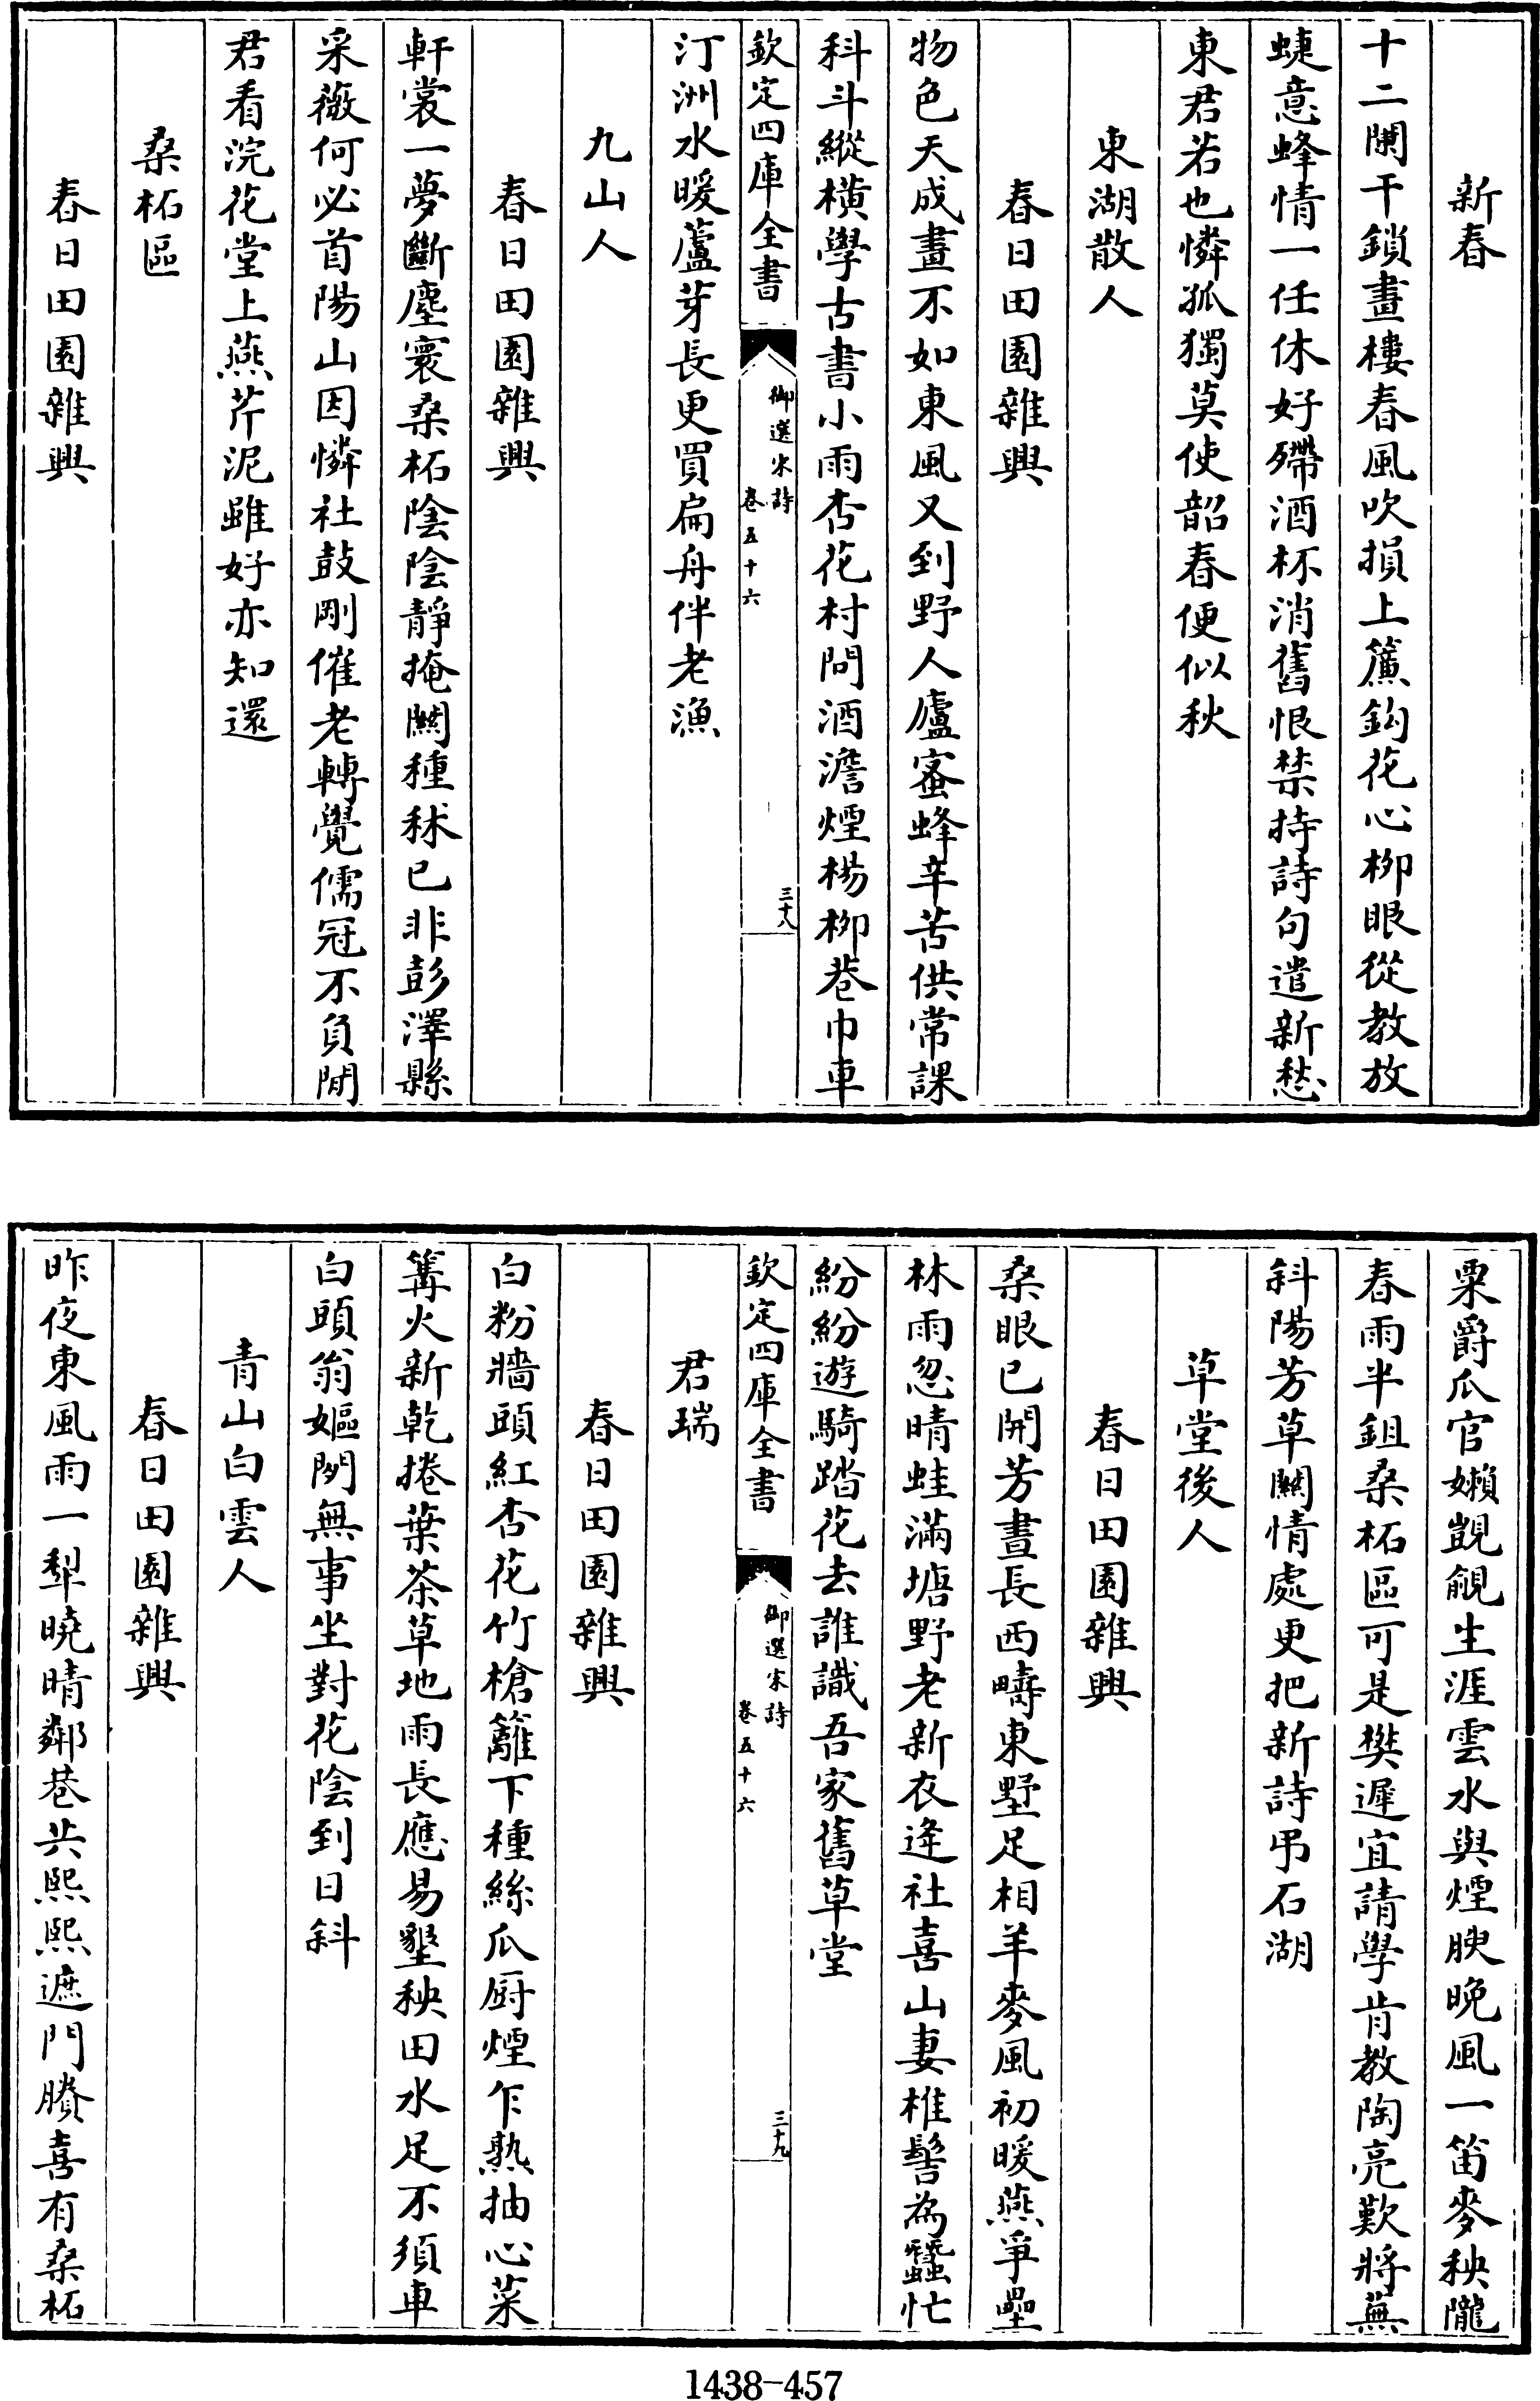 新春
十二闌干鎖畫樓春風吹損上簾鈎花心栁眼從教放
蜨意蜂情一任休好殢酒杯消舊恨禁持詩句遣新愁
東君若也憐孤獨莫使韶春便似秋
東湖散人
春日田園雜興
物色天成畫不如東風又到野人廬蜜蜂辛苦供常課
科斗縱横學古書小雨杏花村問酒澹煙楊栁巷巾車
欽定四庫全書
御選宋詩
卷五十六
三十八
汀洲水暖蘆芽長更買扁舟伴老漁
九山人
春日田園雜興
軒裳一夢斷塵寰桑柘陰陰靜掩關種秫已非彭澤縣
采薇何必首陽山因憐社鼓剛催老轉覺儒冠不負閒
君看浣花堂上燕芹泥雖好亦知還
桑柘區
春日田園雜興
粟爵瓜官嬾覬覦生涯雲水與煙腴晩風一笛麥秧隴
春雨半鉏桑柘區可是樊遲宜請學肯教陶亮歎將蕪
斜陽芳草關情處更把新詩弔石湖
草堂後人
春日田園雜興
桑眼已開芳晝長西疇東墅足相羊麥風初暖燕爭壘
林雨忽晴蛙滿塘野老新衣逄社喜山妻椎髻為蠶忙
紛紛遊騎踏花去誰識吾家舊草堂
欽定四庫全書
御選宋詩
卷五十六
三十九
君瑞
春日田園雜興
白粉牆頭紅杏花竹槍籬下種絲瓜厨煙乍熟抽心菜
篝火新乾捲葉茶草地雨長應易墾秧田水足不須車
白頭翁嫗閒無事坐對花陰到日斜
青山白雲人
春日田園雜興
昨夜東風雨一犁曉晴鄰巷共熙熙遮門賸喜有桑柘
1438-457